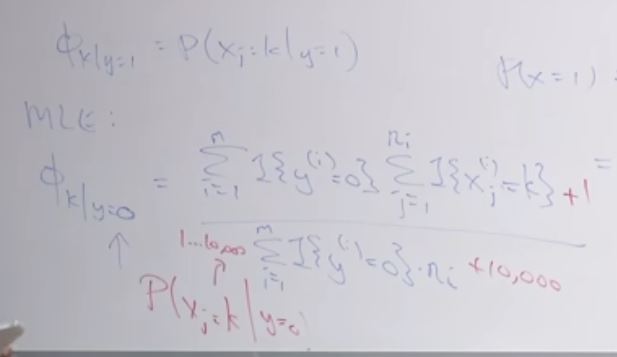 ϕ_{k|y=1} = P(x_j=k|y=1)
P(x=1)
MLE:
ϕ_{k|y=0} = \frac{\sum_{i=1}^{m} 1\{y^{(i)}=0\} \sum_{j=1}^{n_i} 1\{x_j^{(i)}=k\} +1}{\sum_{i=1}^{m} 1\{y^{(i)}=0\}·n_i +10,000} =
↑ 1...10,000
↑
P(x_j=k|y=0)